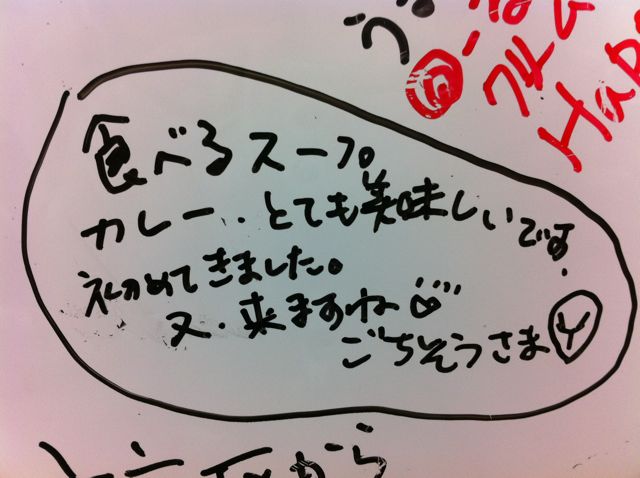 食べるスープ
カレー・とても美味しいです.
初めてきました。
又・来ますね
ごちそうさま Y
Hap
から